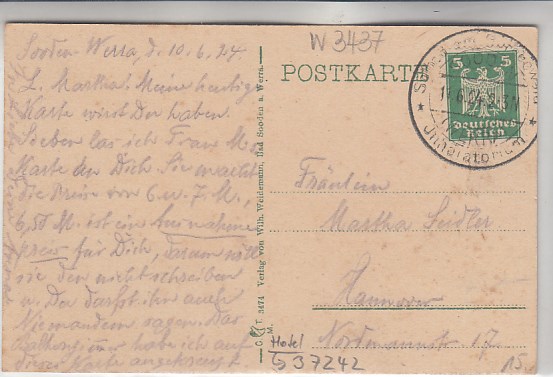 Sooden-Werra, d. 10.6.24
L. Martha! Meine heutige
Karte wirst Du haben.
Soeben las ich Frau M.
Karte an Dich. Sie macht
die Preise von 6 u. 7 M.,
6,50 M. ist ein Ausnahme
preis für Dich, darum will
sie den nicht schreiben
u. Du darfst ihn auch
Niemandem sagen. Das
habe ich auf
dieser Karte angekreuzt.
C. T. 3474 Verlag von Wilh. Weidemann, Bad Sooden a. Werra.
W 3437
POSTKARTE
5 5
Deutsches
Reich
Inhalatorium
Fräulein
Martha Seidler
Hannover
Nordmannst 17
Hotel
S 37242
15